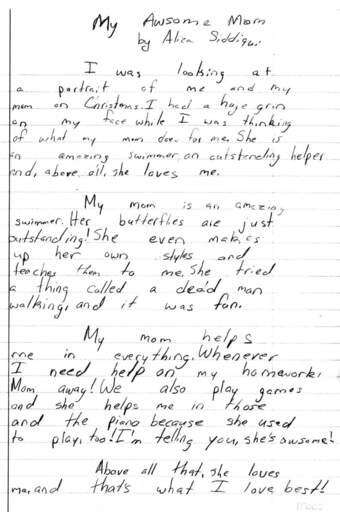 My Awsome Mom
by Aliza Siddiqui
I was looking at
a portrait of me and my
mom on Christmas. I had a huge grin
on my face while I was thinking
of what my mom does for me. She is
an amazing swimmer, an outstanding helper
and, above all, she loves me.
My mom is an amazing
swimmer. Her butterflies are just
outstanding! She even makes
up her own styles and
teaches them to me. She tried
a thing called a dead man
walking, and it was fun.
My mom helps
me in everything. Whenever
I need help on my homework,
Mom away! We also play games
and she helps me in those
and the piano because she used
to play, too! I'm telling you, she's awsome!
Above all that, she loves
me, and that's what I love best!